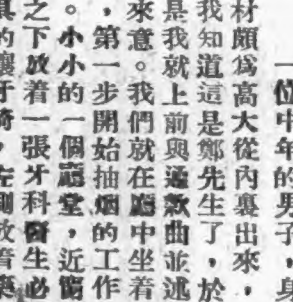 一位中年的男子，身
材頗爲高大從內裏出來，
我知道這是鄭先生了，於
是我就上前與通款曲並述
來意。我們就在廳中坐着
，第一步開始抽烟的工作
。小小的一個廳堂，近窗
之下放着一張牙科醫生必
具的鑲牙椅，左側放着藥